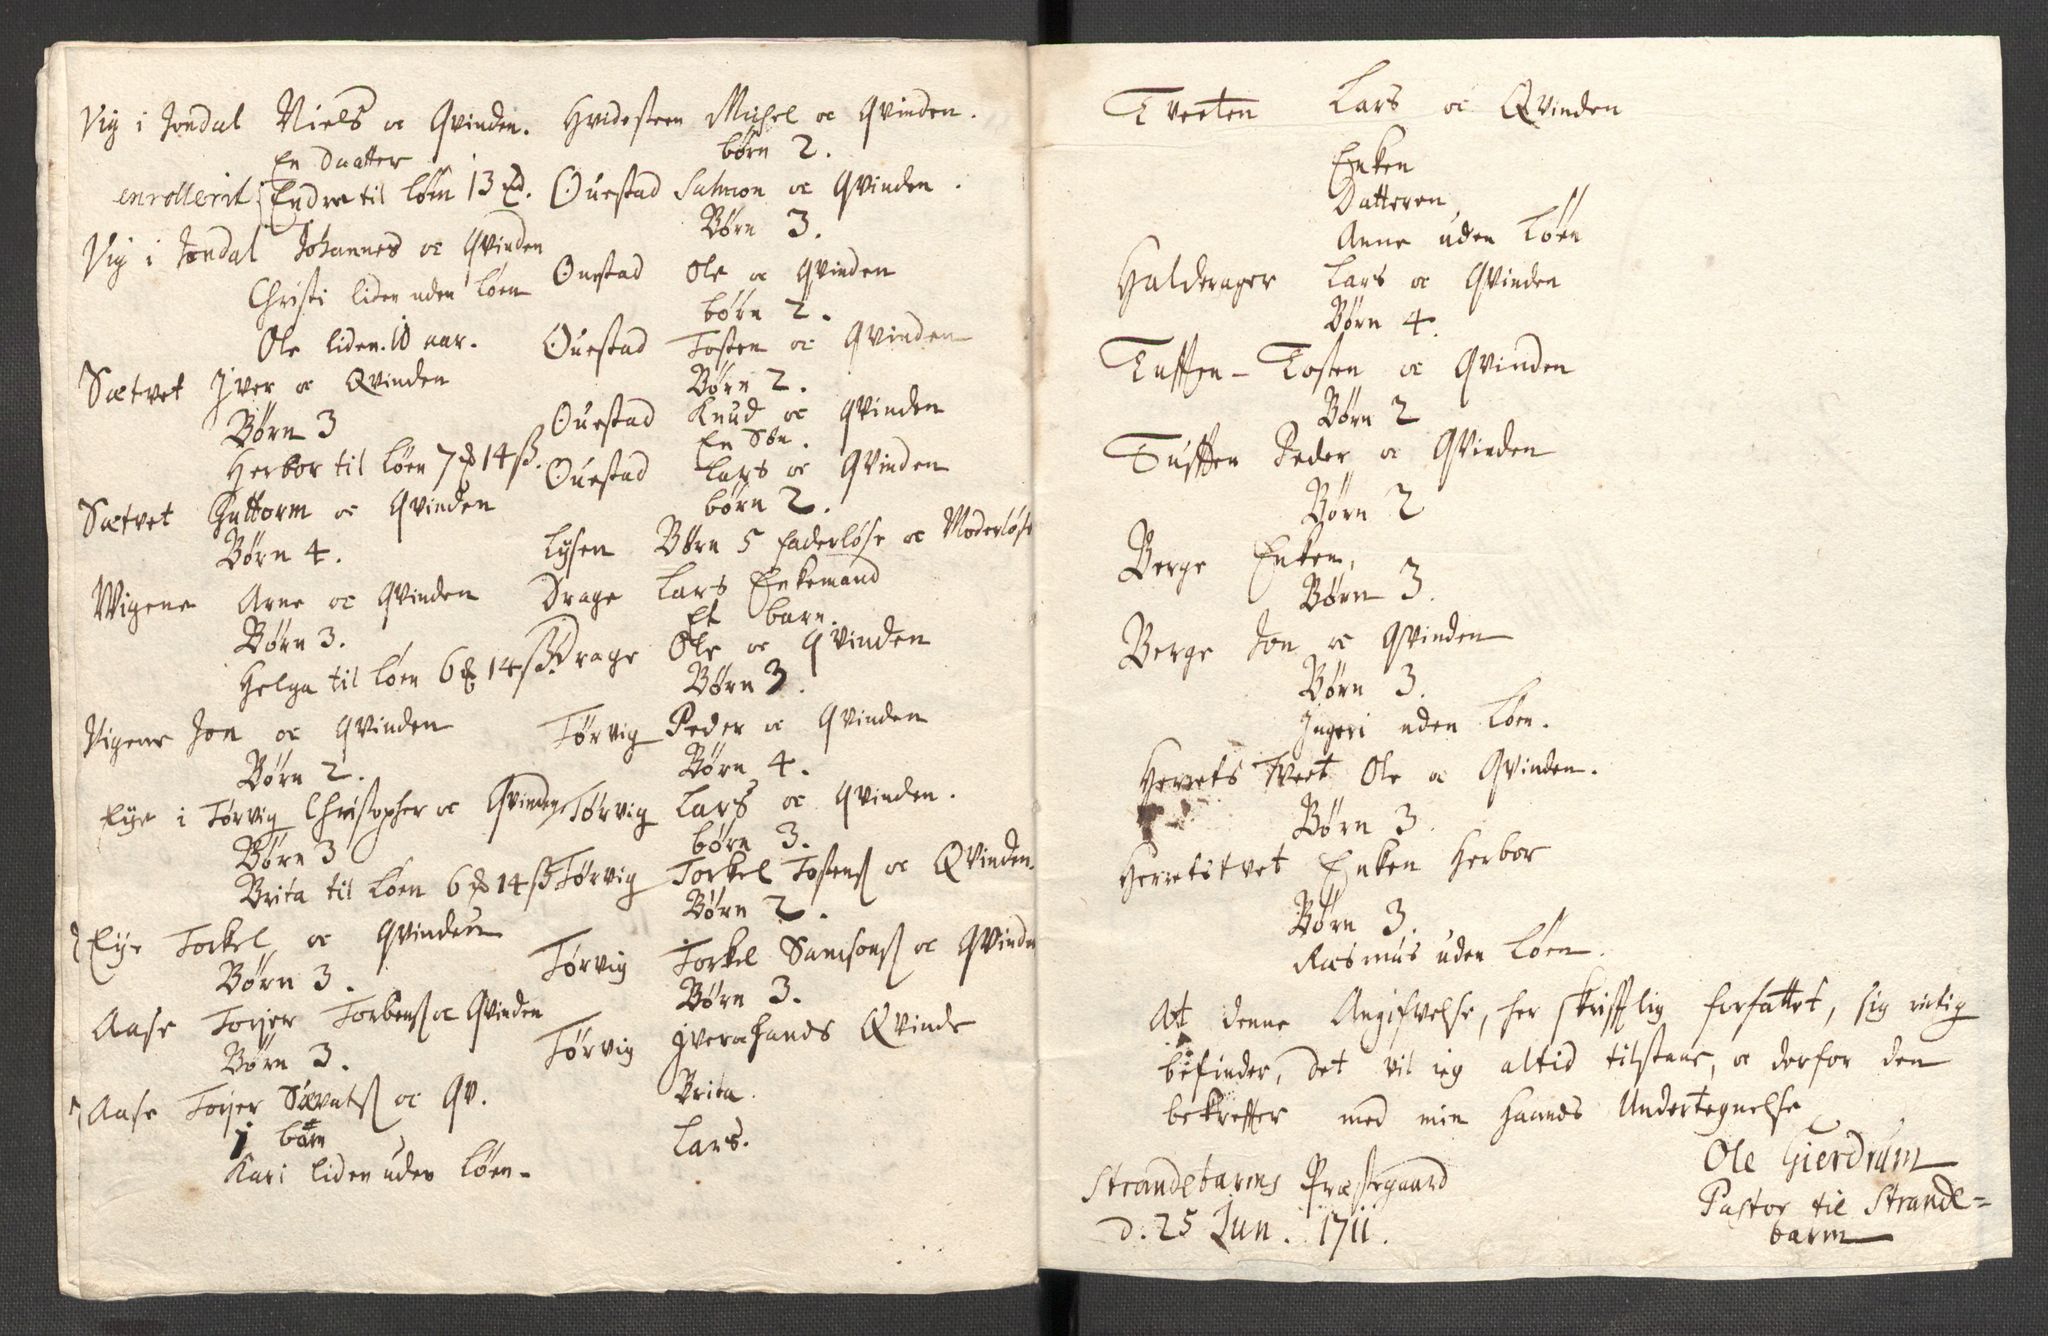 Vig i Jondal Niels oc Qvinden.
En Daatter
enrollerit Endre til løen 13
Vig i Jondal Johannes oc Qvinden
Christi liden uden løen
Ole liden. 10 aar.
Sætvet Jver oc Qvinden
Børn 3
Herbor til løen 7 14 ß.
Sætvet Guttorm oc Qvinden
Børn 4.
Wigene Arne oc Qvinden
Børn 3.
Helga til løen 6 14 ß.
Vigene Jon oc Qvinden
Børn 2.
Eije i Tørvig Christopher oc Qvinden
Børn 3
Brita til løen 6 14 ß
Eije Torkel oc Qvinden
Børn 3.
Aase Torjer Torbens oc Qvinden
Børn 3.
Aase Torjer oc Qv.
1 barn
Kari liden uden løen.
Hvidesteen Michel oc Qvinden.
børn 2.
Ouestad Salmon oc Qvinden.
Børn 3.
Ouestad Ole oc Qvinden
børn 2.
Ouestad Tosten oc Qvinden
Børn 2.
Ouestad Knud oc Qvinden
En Søn.
Ouestad Lars oc Qvinden
børn 2.
Lysen Børn 5 Faderløse oc Moderløse
Drage Lars Enkemand
Et barn.
Drage Ole oc Qvinden
Børn 3.
Tørvig Peder oc Qvinden
Børn 4.
Tørvig Lars oc Qvinden.
børn 3.
Tørvig Torkel Tostens oc Qvinden.
Børn 2.
Tørvig Torkel Samsons oc Qvinden
Børn 3.
Tørvig Jver oc hands Qvinde
Brita.
Lars.
Tveeten Lars oc Qvinden
Enken
Datteren
Anne uden Løen
Halderager Lars oc Qvinden
Børn 4.
Tuffen - Tosten oc Qvinden
Børn 2
Tuffen Peder oc Qvinden
Børn 2
Berge Enken,
Børn 3.
Berge Jon oc Qvinden
Børn 3.
Jngeri uden Løen.
Herrets Tveet Ole oc Qvinden.
Børn 3.
Herretstvet Enken Herbor
Børn 3.
Rasmus uden Løen.
At denne Angifvelse, her skrifftlig forfattet, sig rictig
befinder, det vil ieg altid tilstaae, oc derfor den
bekreffter med min Haands Undertegnelse
Strandebarms Præstegaard
d. 25 Jun. 1711.
Ole Gierdrum
Pastor til Strande=
barm